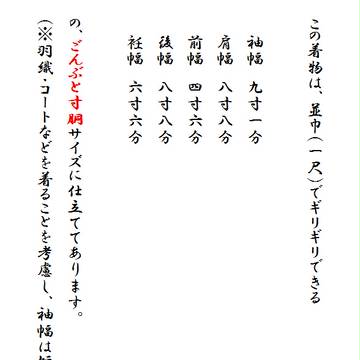 この着物は、並巾(一尺)でギリギリできる
袖幅 九寸一分
肩幅 八寸八分
前幅 四寸六分
後幅 八寸八分
衽幅 六寸六分
の、ごんぶと寸胴サイズに仕立ててあります。
(※羽織・コートなどを着ることを考慮し、袖幅は